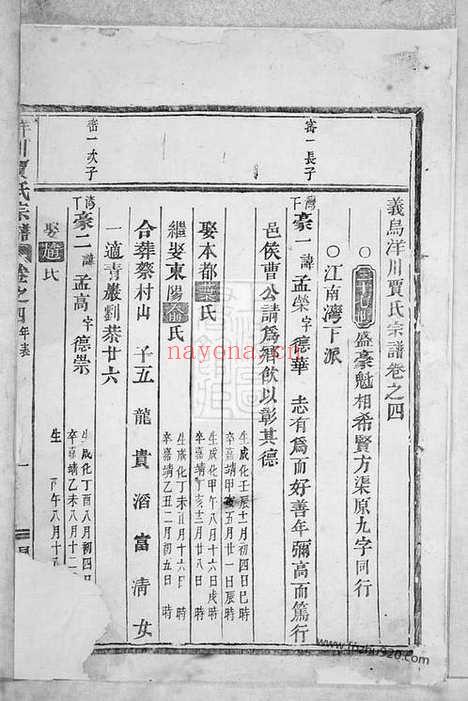 義烏洋川賈氏宗譜卷之四
盛豪魁相希賢方渠原九字同行
江南灣下派
審一長子
灣下豪一諱孟榮字德華 志有爲而好善年彌高而篤行
邑侯曹公請爲賓飲以彰其德
生成化壬辰十二月初四日巳時
卒嘉靖甲 五月廿一日辰時
娶本都葉氏
生成化甲午八月十六日戌時
卒嘉靖丁亥三月廿八日 時
繼娶東陽俞氏
生成化丁未正月十六日 時
卒嘉靖乙丑二月初五日 時
合葬蔡村山 子五 龍 貴 滔 富 清 女
一適青巖劉恭廿六
審一次子
灣下豪二諱孟高字德崇
生成化丁酉八月初四日
卒嘉靖乙未八月十二
娶趙氏
生 丙午八月十
洋川賈氏宗譜 卷之四 年表
一
nayona.cn
www.jiapu920.com